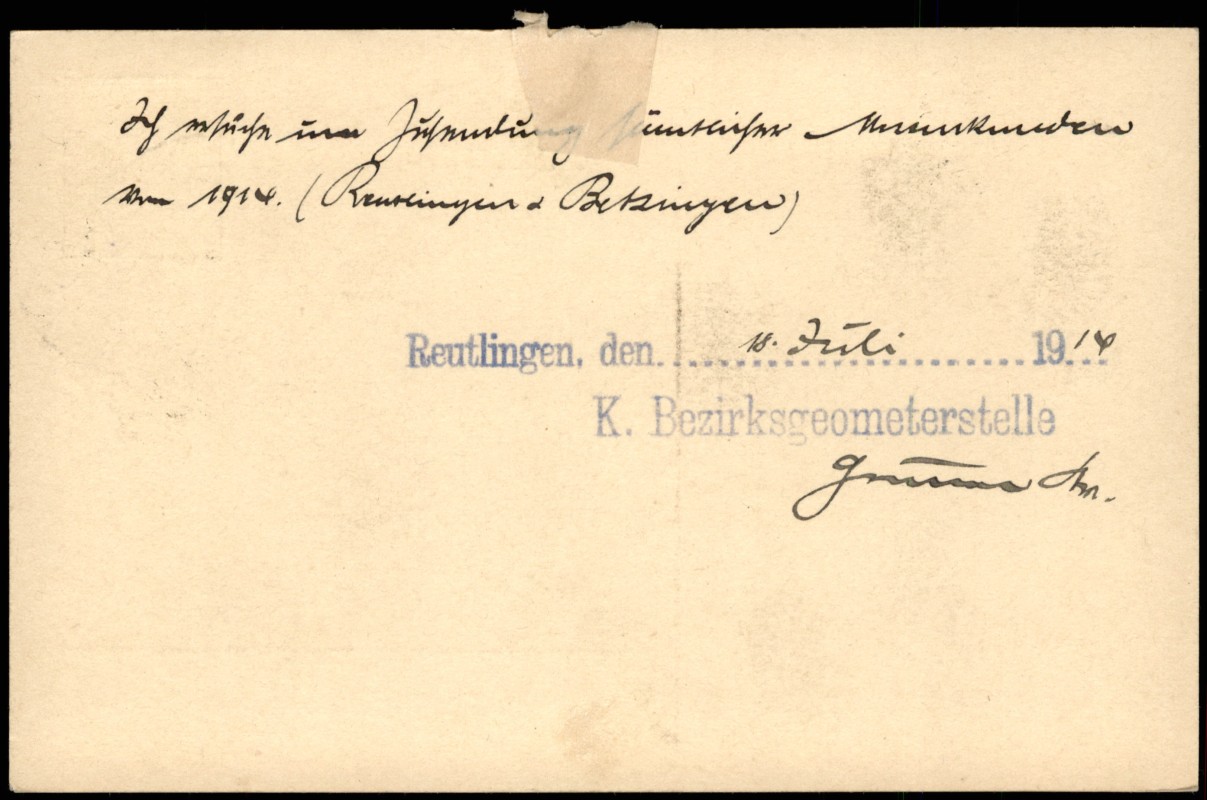 Ich ersuche um Zusendung sämtlicher Messurkunden
vom 1914. (Reutlingen & Betzingen)
Reutlingen, den 18. Juli 1914
K. Bezirksgeometerstelle